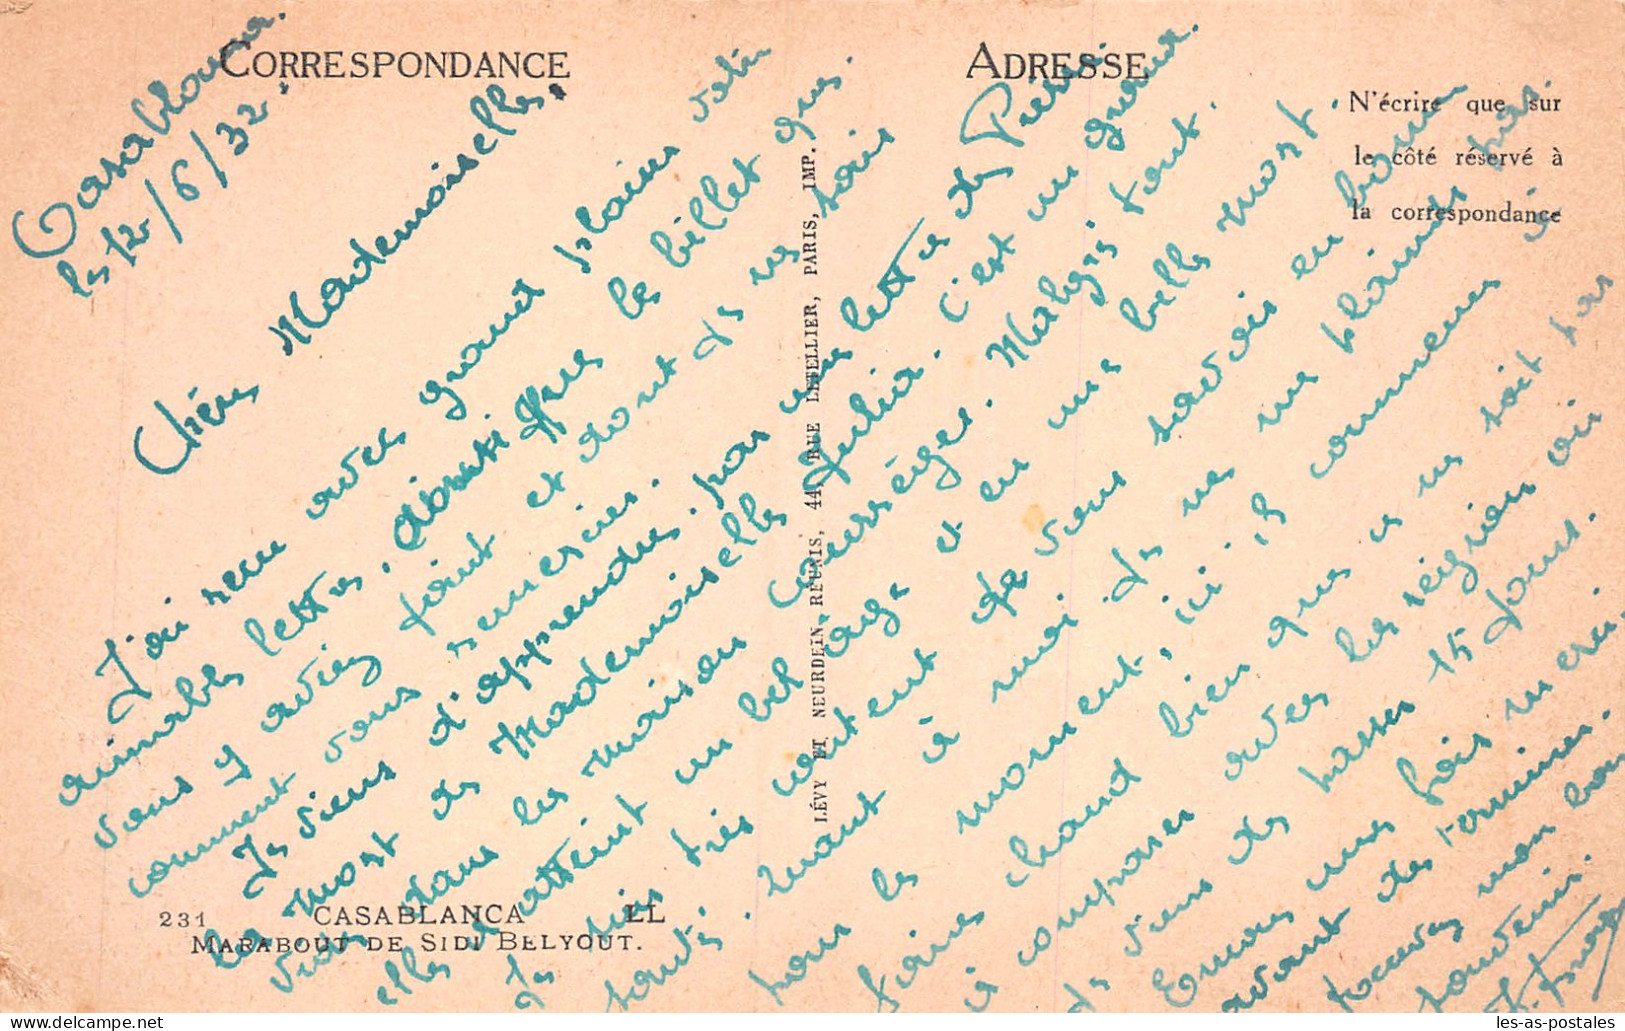 CORRESPONDANCE
ADRESSE
N'écrire que sur
le côté réservé à
la correspondance
Casablanca
le 12/6/32.
Chère Mademoiselle,
J'ai reçu avec grand plaisir votre
aimable lettre, ainsi que le billet que
vous y aviez joint et dont je ne sais
comment vous remercier.
Je viens d'apprendre par une lettre de
la mort de Mademoiselle Julia. C'est un grand
vide dans la maison Elle a
atteint un bel âge et eu une belle mort.
Je suis très content de vous savoir en bonne
santé. Quant à moi je ne me plains pas.
Pour le moment, ici il commence à
faire chaud bien que ce ne soit pas
à comparer avec la région où
je viens de passer 15 jours.
Encore une fois merci
avant de terminer.
recevez mon bon
souvenir.
231 CASABLANCA LL
MARABOUT DE SIDI BELYOUT.
LÉVY ET NEURDEIN RÉUNIS, 44, RUE LETELLIER, PARIS, IMP.
les-as-postales